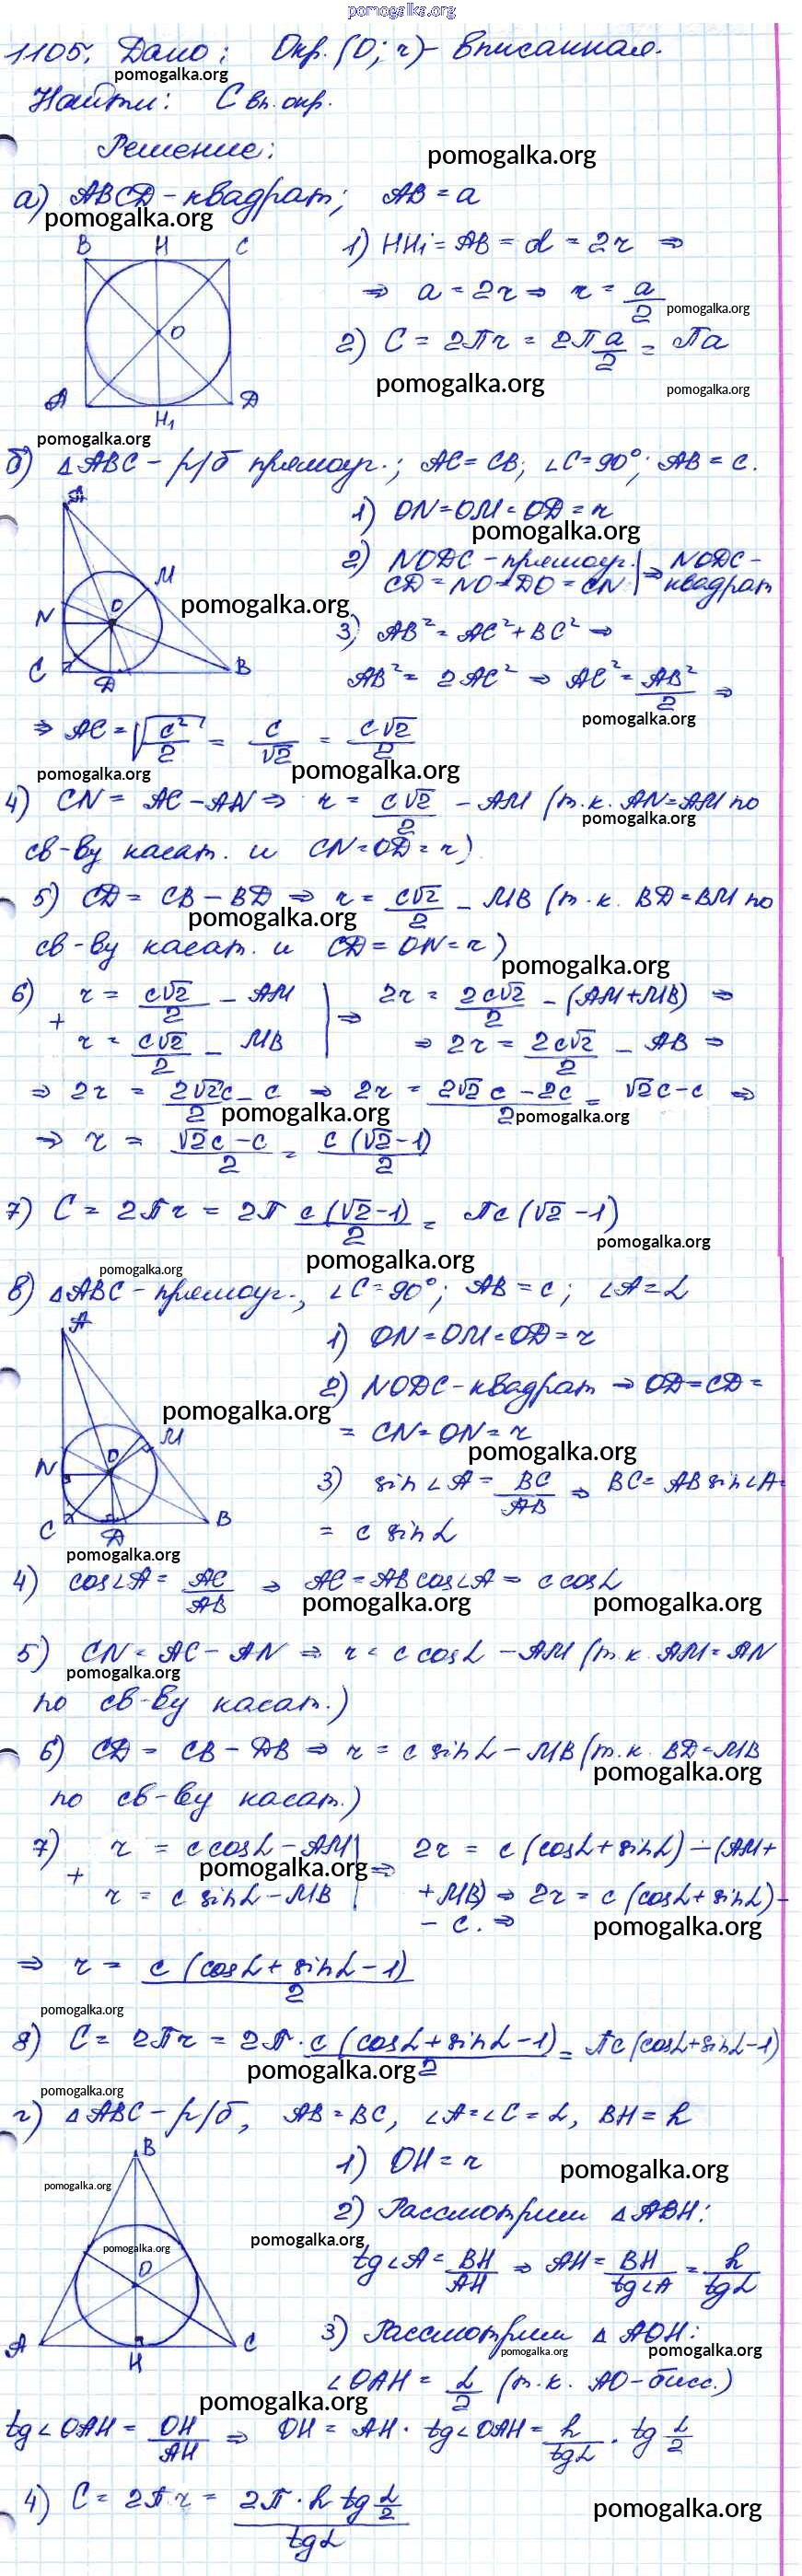 pomogalka.org
1105. Дано: Окр. (O; r) - вписанная.
pomogalka.org
Найти: C вп. окр.
Решение:
pomogalka.org
а) ABCD - квадрат; AB = a
pomogalka.org
B H C
1) HH₁ = AB = d = 2r ⇒
⇒ a = 2r ⇒ r = a/2
pomogalka.org
O
2) C = 2πr = 2π a/2 = πa
pomogalka.org pomogalka.org
A H₁ D
pomogalka.org
б) △ABC - р/б прямоуг.; AC = CB; ∠C = 90°; AB = c.
A
1) ON = OM = OD = r
pomogalka.org
2) NODC - прямоуг. | ⇒ NODC -
CD = NO = DO = CN | квадрат
M
N O
pomogalka.org
3) AB² = AC² + BC² ⇒
C D B
AB² = 2AC² ⇒ AC² = AB²/2 ⇒
pomogalka.org
⇒ AC = √(c²/2) = c/√2 = c√2/2
pomogalka.org pomogalka.org
4) CN = AC - AN ⇒ r = c√2/2 - AM (т.к. AN = AM по
pomogalka.org
св-ву касат. и CN = OD = r)
5) CD = CB - BD ⇒ r = c√2/2 - MB (т.к. BD = BM по
pomogalka.org
св-ву касат. и CD = ON = r)
pomogalka.org
6) r = c√2/2 - AM | ⇒ 2r = 2c√2/2 - (AM + MB) ⇒
+ r = c√2/2 - MB | ⇒ 2r = 2c√2/2 - AB ⇒
⇒ 2r = 2√2c/2 - c ⇒ 2r = (2√2c - 2c)/2 = √2c - c ⇒
pomogalka.org pomogalka.org
⇒ r = (√2c - c)/2 = c(√2 - 1)/2
7) C = 2πr = 2π c(√2 - 1)/2 = πc(√2 - 1)
pomogalka.org
pomogalka.org
pomogalka.org
в) △ABC - прямоуг., ∠C = 90°; AB = c; ∠A = α
A
1) ON = OM = OD = r
2) NODC - квадрат ⇒ OD = CD =
pomogalka.org
= CN = ON = r
pomogalka.org
M
N O
3) sin∠A = BC/AB ⇒ BC = AB sin∠A =
C D B
= c sinα
pomogalka.org
4) cos∠A = AC/AB ⇒ AC = AB cos∠A = c cosα
pomogalka.org pomogalka.org
5) CN = AC - AN ⇒ r = c cosα - AM (т.к. AM = AN
pomogalka.org
по св-ву касат.)
6) CD = CB - DB ⇒ r = c sinα - MB (т.к. BD = MB
pomogalka.org
по св-ву касат.)
7) r = c cosα - AM | 2r = c(cosα + sinα) - (AM +
pomogalka.org ⇒
+ r = c sinα - MB | + MB) ⇒ 2r = c(cosα + sinα) -
- c. ⇒
pomogalka.org
⇒ r = c(cosα + sinα - 1)/2
pomogalka.org
8) C = 2πr = 2π · c(cosα + sinα - 1)/2 = πc(cosα + sinα - 1)
pomogalka.org
pomogalka.org
г) △ABC - р/б, AB = BC, ∠A = ∠C = α, BH = h
B
1) OH = r
pomogalka.org
pomogalka.org
2) Рассмотрим △ABH:
pomogalka.org
pomogalka.org
O
tg∠A = BH/AH ⇒ AH = BH/tg∠A = h/tgα
A H C
3) Рассмотрим △AOH:
pomogalka.org pomogalka.org
∠OAH = α/2 (т.к. AO - бисс.)
pomogalka.org
tg∠OAH = OH/AH ⇒ OH = AH · tg∠OAH = h/tgα · tg α/2
4) C = 2πr = (2π · h tg α/2)/tgα
pomogalka.org